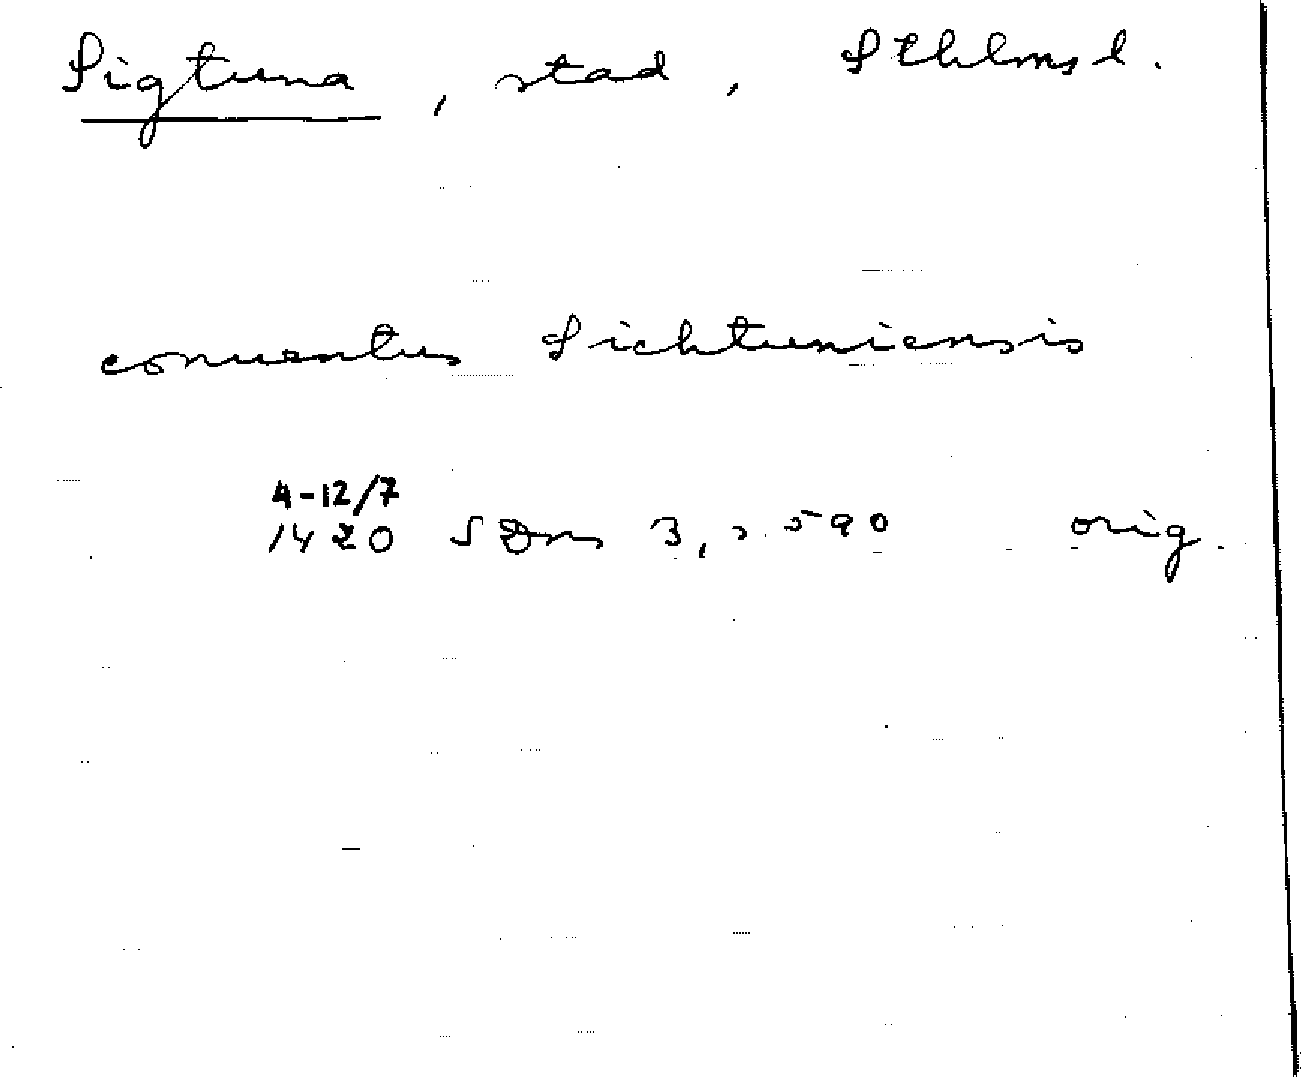 Sigtuna, stad, Sthlmsl.
conuentus Sichtuniensis
4-12/7
1420 SDns 3, s. 590 orig.